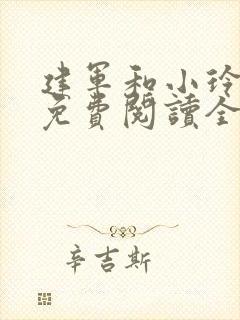 建軍和小玲
免費閱讀全
辛吉斯